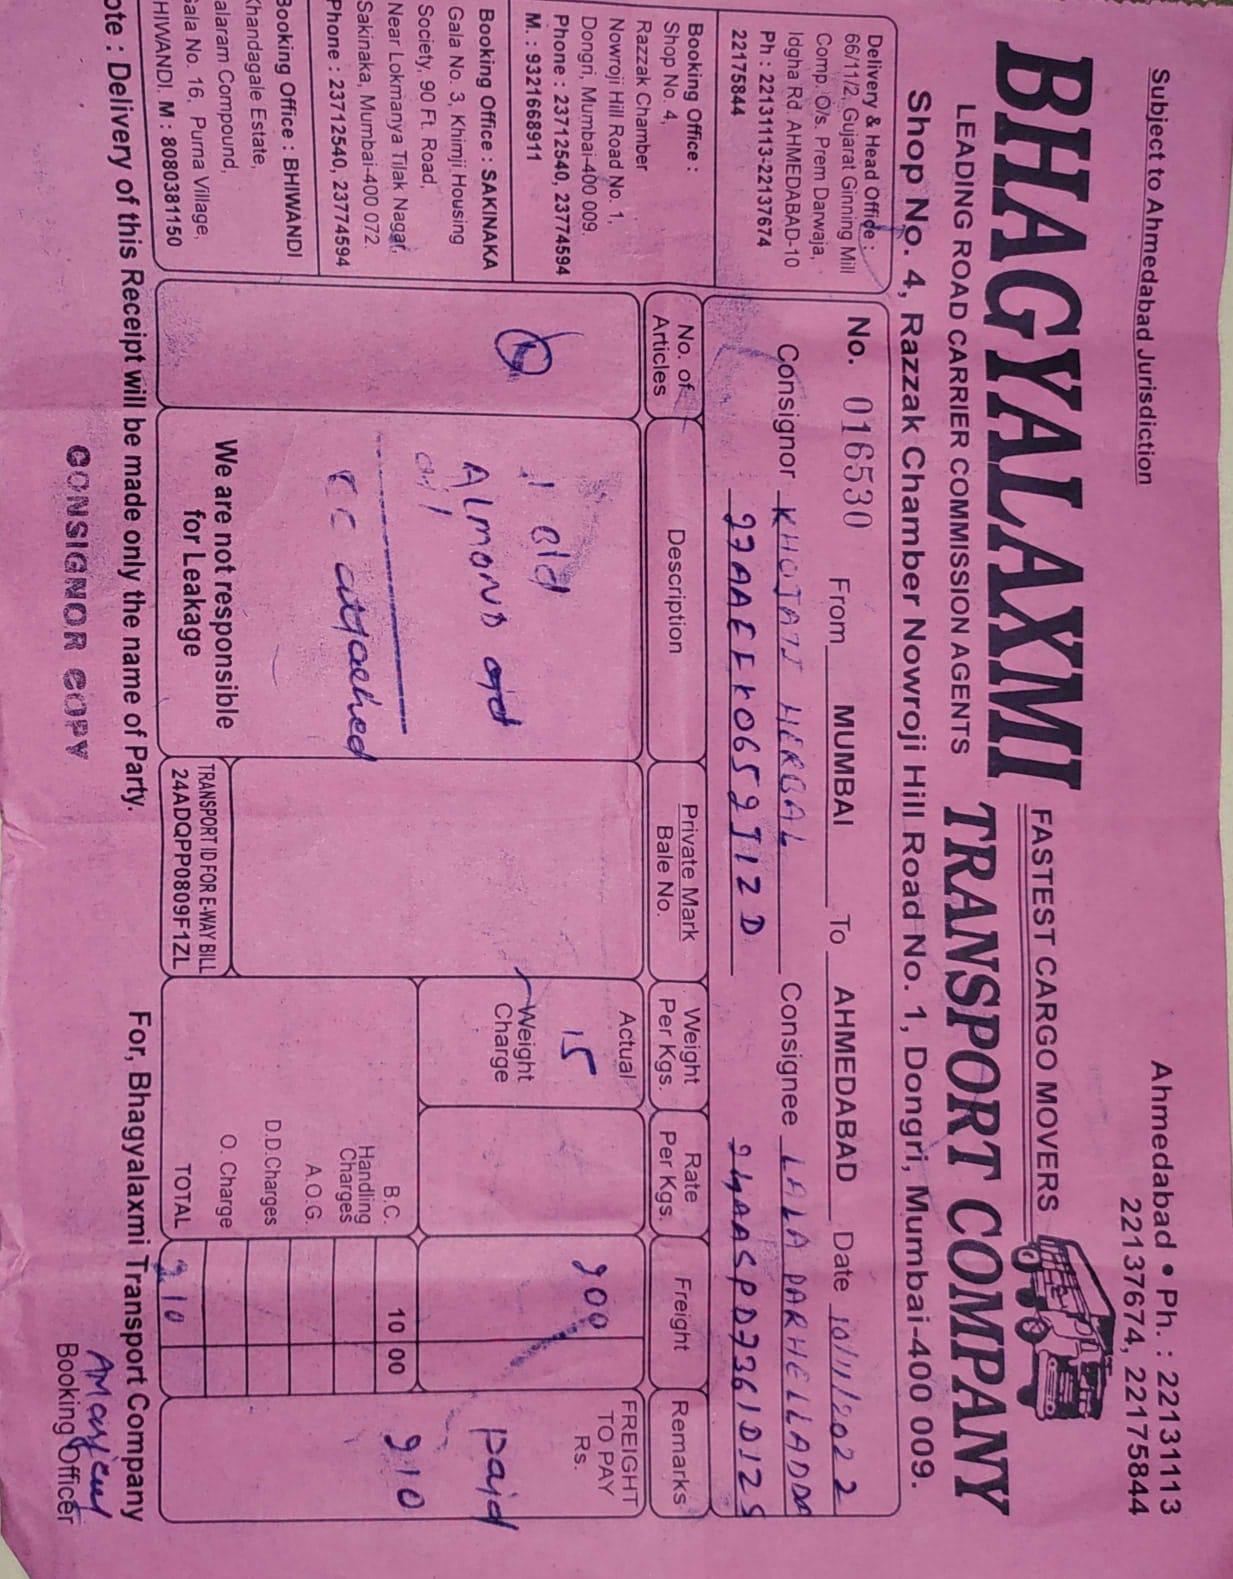 Subject to Ahmedabad Jurisdiction
Ahmedabad • Ph. : 22131113
22137674, 22175844
BHAGYALAXMI
FASTEST CARGO MOVERS
TRANSPORT COMPANY
LEADING ROAD CARRIER COMMISSION AGENTS
Shop No. 4, Razzak Chamber Nowroji Hill Road No. 1, Dongri, Mumbai-400 009.
Delivery & Head Office :
66/11/2, Gujarat Ginning Mill
Comp. O/s. Prem Darwaja,
Idgha Rd. AHMEDABAD-10
Ph : 22131113-22137674
22175844
Booking Office :
Shop No. 4,
Razzak Chamber
Nowroji Hill Road No. 1,
Dongri, Mumbai-400 009.
Phone : 23712540, 23774594
M. : 9321668911
Booking Office : SAKINAKA
Gala No. 3, Khimji Housing
Society, 90 Ft. Road,
Near Lokmanya Tilak Nagar,
Sakinaka, Mumbai-400 072.
Phone : 23712540, 23774594
Booking Office : BHIWANDI
Khandagale Estate,
alaram Compound,
Gala No. 16, Purna Village,
HIWANDI. M : 8080381150
No. 016530 From MUMBAI To AHMEDABAD Date 10/11/2022
Consignor KHOJATI HERBAL Consignee LALA PARHELLADDA
27AAEFK0659J1ZD
No. of Articles
Description
Private Mark
Bale No.
Weight Per Kgs.
Rate Per Kgs.
Freight
Remarks
1 old
ALMOND
oil
CC attached
We are not responsible
for Leakage
TRANSPORT ID FOR E-WAY BILL
24ADQPP0809F1ZL
Actual
15
Weight Charge
200
FREIGHT
TO PAY
Rs.
paid
210
B.C. 10 00
Handling Charges
A.O.G.
D.D.Charges
O. Charge
TOTAL 210
ote : Delivery of this Receipt will be made only the name of Party.
For, Bhagyalaxmi Transport Company
CONSIGNOR COPY
Booking Officer